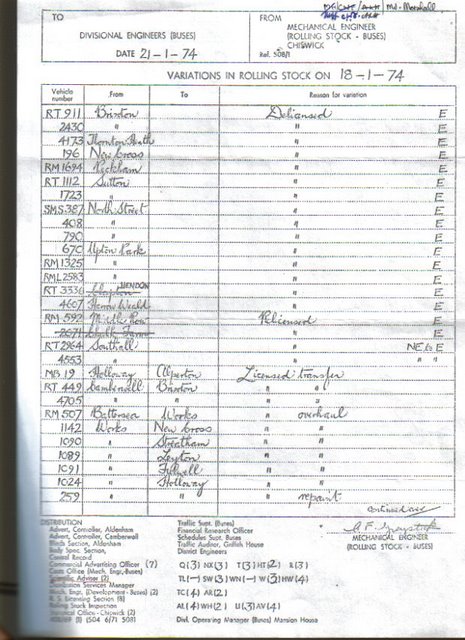 TO
DIVISIONAL ENGINEERS (BUSES)
DATE 21-1-74
FROM Md-Marshall
MECHANICAL ENGINEER
(ROLLING STOCK - BUSES)
CHISWICK
Ref. SOB/1
VARIATIONS IN ROLLING STOCK ON 18-1-74
Vehicle number From To Reason for variation
RT 911 Brixton Delicensed E
2430 " " E
4173 Thornton Heath " E
196 New Cross " E
RM 1694 Peckham " E
RT 1112 Sutton " E
1723 " " E
SMS 387 North Street " E
408 " " E
790 " " E
670 Upton Park " E
RM 1325 " " E
RML 2583 " " E
RT 3336 Clapton HENDON " E
4607 Harrow Weald " E
RM 592 Middle Row Relicensed E
2671 Chalk Farm " E
RT 2964 Southall " NE to E
4553 " " " "
MB 19 Holloway Alperton Licensed transfer
RT 449 Camberwell Brixton " "
4705 " " " "
RM 507 Battersea Works " overhaul
1142 Works New Cross " "
1090 " Streatham " "
1089 " Leyton " "
1091 " Fulwell " "
1024 " Holloway " "
259 " " " repaint
Continued over
DISTRIBUTION
Advert. Controller, Aldenham
Advert. Controller, Camberwell
Blinds Section, Aldenham
Body Spec. Section,
Central Record
Commercial Advertising Officer (7)
Costs Office (Mech. Engr.-Buses)
Scientific Adviser (2)
Distribution Services Manager
Mech. Engr. (Development - Buses) (2)
R. S. Licensing Section (8)
Rolling Stock Inspection
Statistical Office - Chiswick (2)
(504 6/71 508)
Traffic Supt. (Buses)
Financial Research Officer
Schedules Supt. Buses
Traffic Auditor, Griffith House
District Engineers
Q(3) NX(3) T(3) HT(2) R(3)
TL(-) SW(3) WN(-) W(3) HW(4)
TC(4) AR(2)
AL(4) WH(2) U(3) AV(4)
Divl. Operating Manager (Buses) Mansion House
MECHANICAL ENGINEER
(ROLLING STOCK - BUSES)